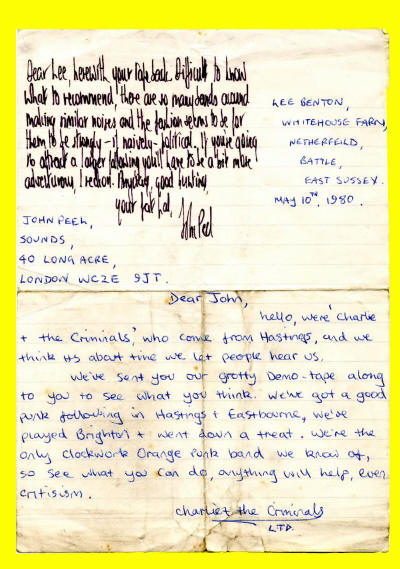 Dear Lee, herewith your tape back. Difficult to know
what to recommend, there are so many bands around
making similar noises and the fashion seems to be for
them to be strongly - if naively - political. If you're going
to attract a larger following you'll have to be a bit more
adventurous, I reckon. Anyway, good hunting
your fat pal,
John Peel
LEE BENTON,
WHITEHOUSE FARM,
NETHERFEILD,
BATTLE,
EAST SUSSEX.
MAY 10TH, 1980.
JOHN PEEL,
SOUNDS,
40 LONG ACRE,
LONDON WC2E 9JT.
Dear John,
hello, we're 'Charlie
+ the Criminals', who come from Hastings, and we
think its about time we let people hear us.
We've sent you our grotty Demo-tape along
to you to see what you think. We've got a good
punk following in Hastings + Eastbourne, we've
played Brighton + went down a treat. We're the
only Clockwork Orange Punk band we know of,
so see what you can do, anything will help, even
critisism.
charlie + the Criminals
LTD.